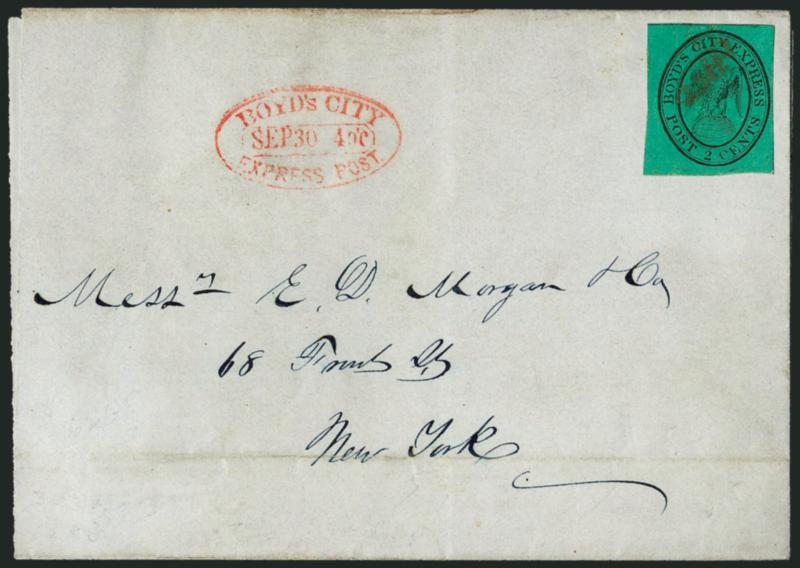 BOYD'S CITY EXPRESS
POST 2 CENTS
BOYD'S CITY
SEP 30 4 o'C
EXPRESS POST
Messrs E. D. Morgan & Co
68 Front St
New York